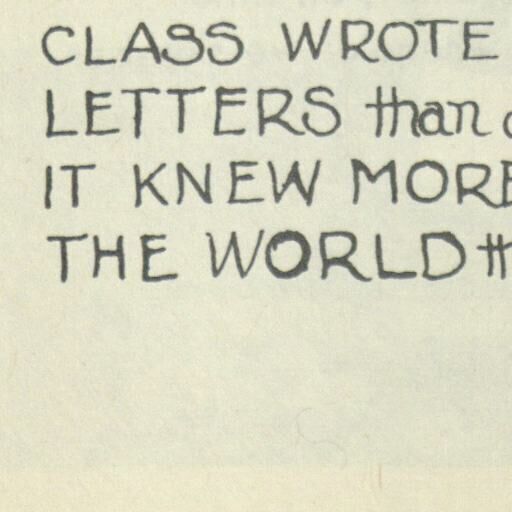 CLASS WROTE
LETTERS than
IT KNEW MORE
THE WORLD